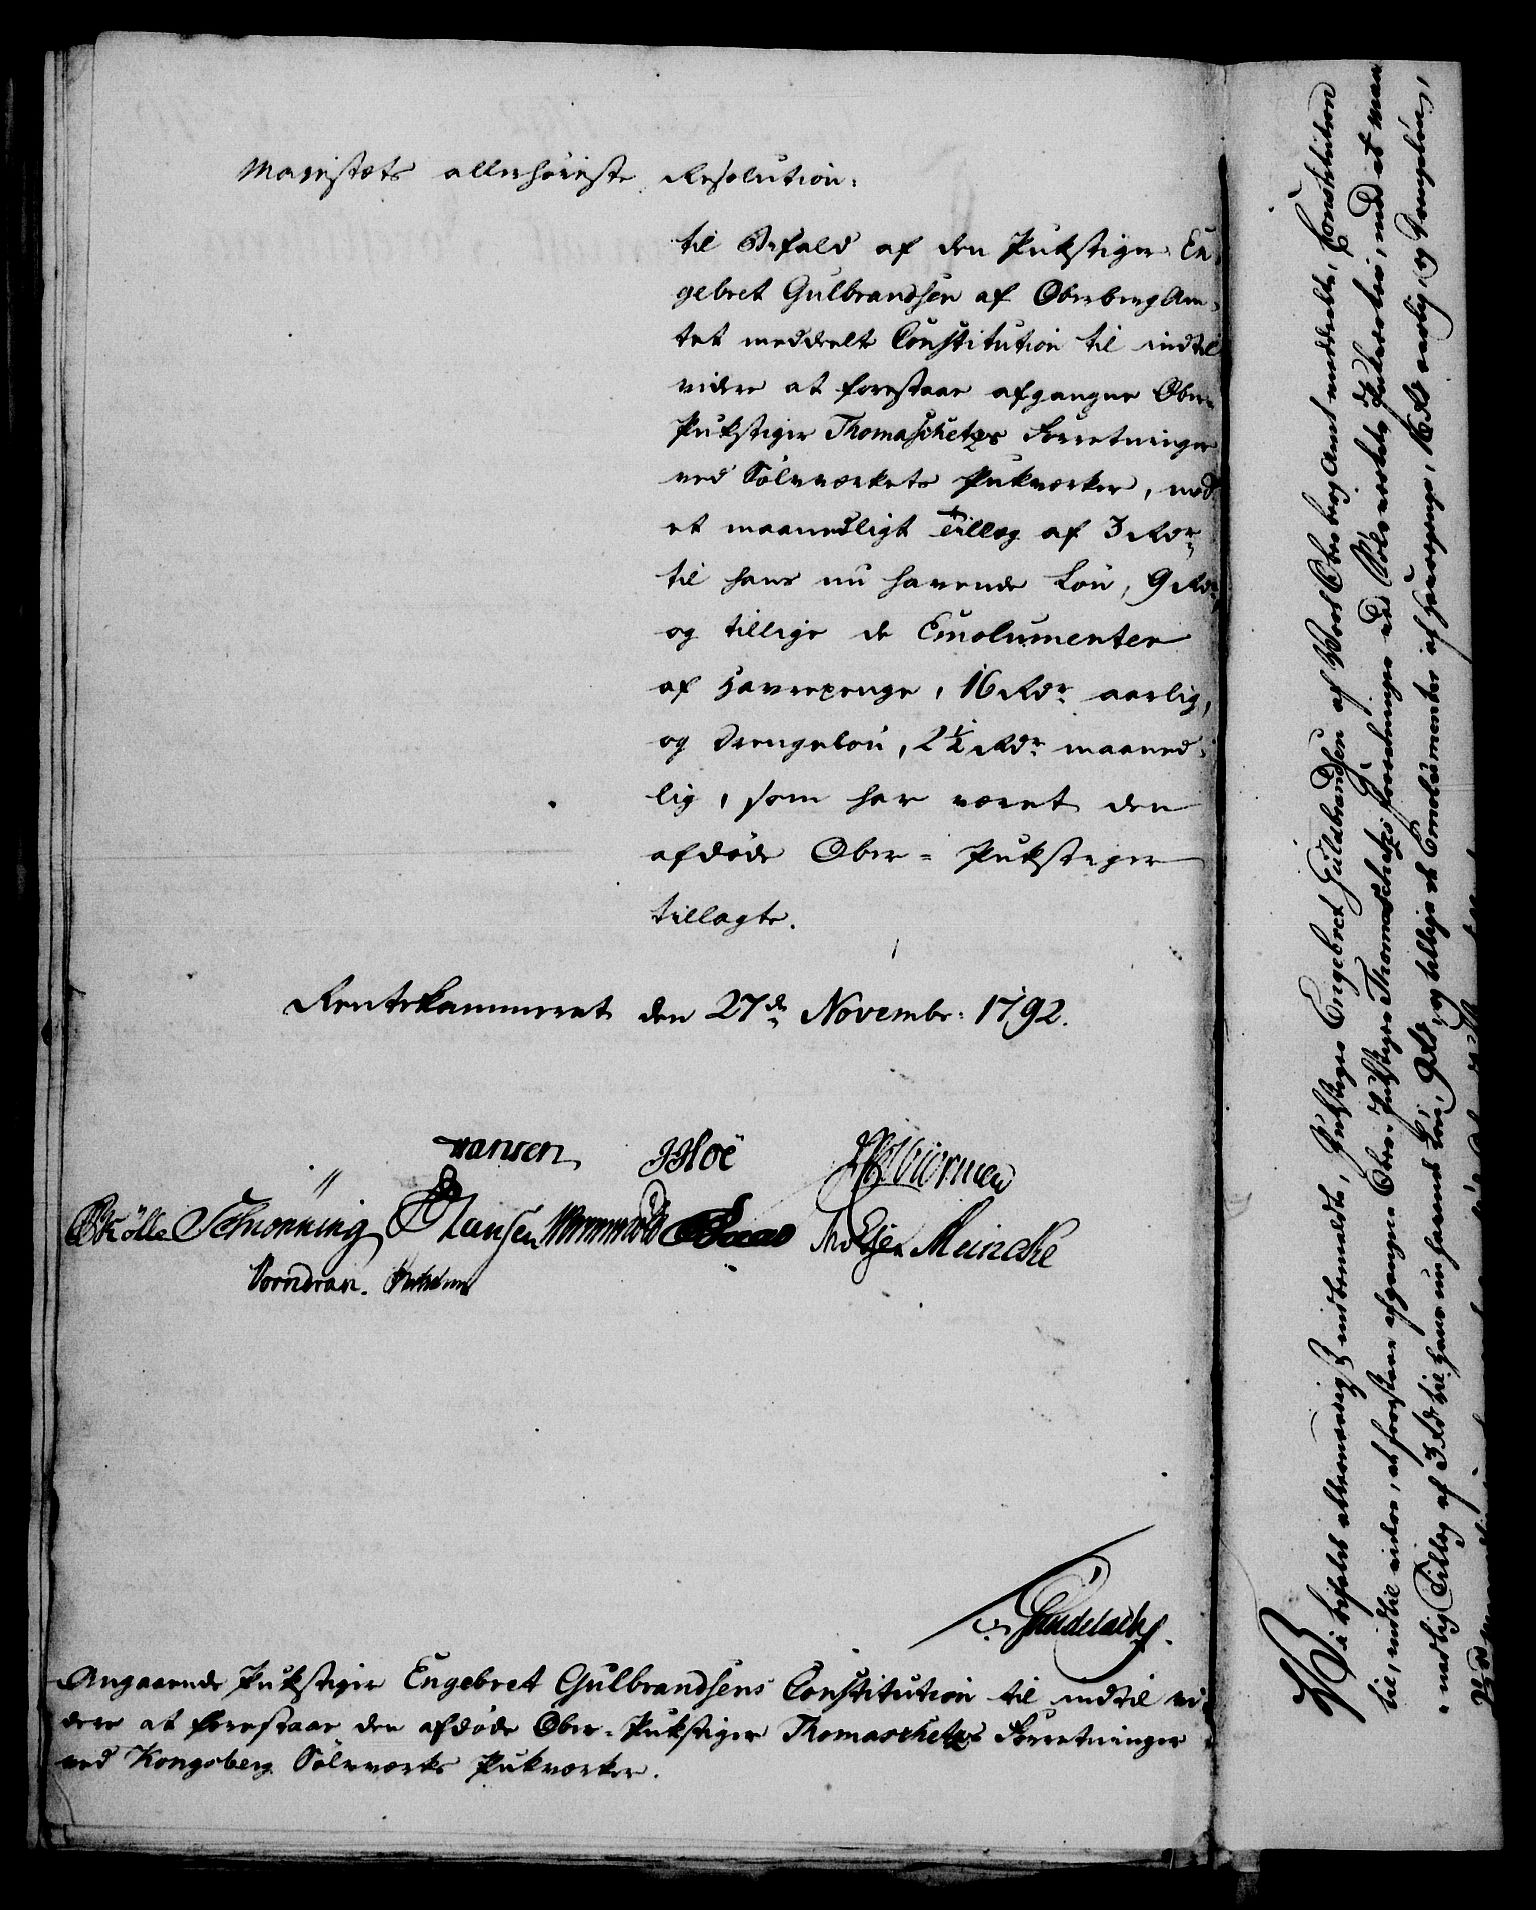 Majestæts allerhöieste Resolution:
til Befald af den Pukstiger En-
gebret Gulbrandsen af Oberberg Am-
tet meddeelte Constitution til indtil
videre at forestaae afgangne Ober-
Pukstiger Thomaschetzs Forretninger
ved Sölvværkets Pukværker, med
et maanedligt Tillæg af 3 Rdr
til hans nu havende Lön, 9 Rdr,
og tillige de Emolumenter
af Havrepenge, 16 Rdr aarlig,
og Drengelön, 2½ Rdr maaned-
lig, som har været den
afdöde Ober-Pukstiger
tillagte.
Rentekammeret den 27de Novembr: 1792.
Hansen JHoë Wormen
Schiönning Hansen Meincke
Vorndran.
Angaaende Pukstiger Engebret Gulbrandsens Constitution til indtil vi-
dere at forestaae den afdöde Ober-Pukstiger Thomaschetzs Forretninger
ved Kongsberg Sölvværks Pukværker.
Vi bifalde allernaadigst indbemeldte, Pukstiger Engebret Gulbrandsen af Vort Ober Berg Amt meddeelte, Constitution
til, indtil videre, at forestaae afgangne Ober-Pukstiger Thomaschetzs Forretninger ved Sölvværkets Pukværker, med et maa-
nedlig Tillæg af 3 Rd til hans nu havende Lön, 9 Rd, og tillige de Emolumenter af Havrepenge, 16 Rd aarlig, og Drengelön,